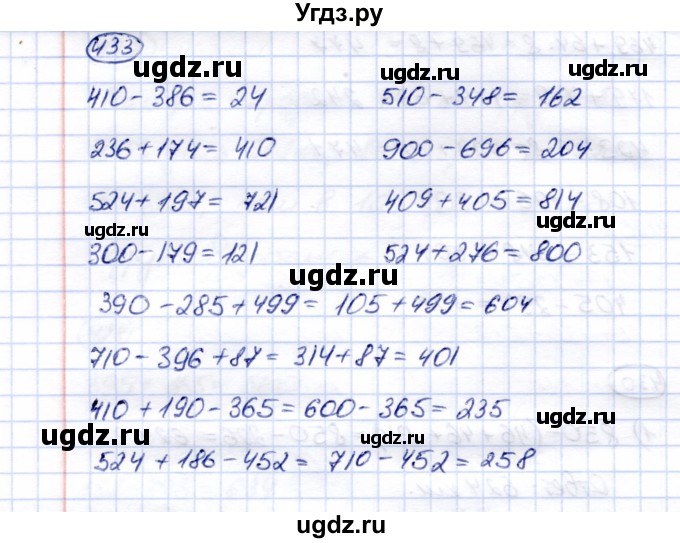 Угдз.ру
433
410 - 386 = 24 510 - 348 = 162
ugdz.ru ugdz.ru
236 + 174 = 410 900 - 696 = 204
ugdz.ru
524 + 197 = 721 409 + 405 = 814
ugdz.ru ugdz.ru
300 - 179 = 121 524 + 276 = 800
ugdz.ru
390 - 285 + 499 = 105 + 499 = 604
ugdz.ru
710 - 396 + 87 = 314 + 87 = 401
410 + 190 - 365 = 600 - 365 = 235
ugdz.ru ugdz.ru
524 + 186 - 452 = 710 - 452 = 258
ugdz.ru
ugdz.ru